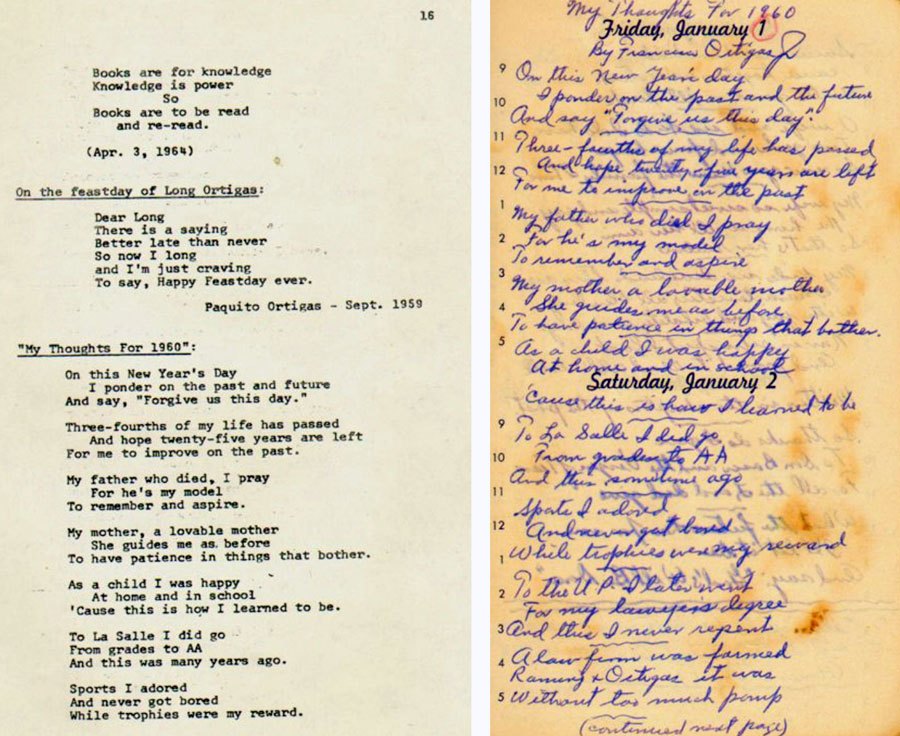 16
Books are for knowledge
Knowledge is power
So
Books are to be read
and re-read.
(Apr. 3, 1964)
On the feastday of Long Ortigas:
Dear Long
There is a saying
Better late than never
So now I long
and I'm just craving
To say, Happy Feastday ever.
Paquito Ortigas - Sept. 1959
"My Thoughts For 1960":
On this New Year's Day
I ponder on the past and future
And say, "Forgive us this day."
Three-fourths of my life has passed
And hope twenty-five years are left
For me to improve on the past.
My father who died, I pray
For he's my model
To remember and aspire.
My mother, a lovable mother
She guides me as before
To have patience in things that bother.
As a child I was happy
At home and in school
'Cause this is how I learned to be.
To La Salle I did go
From grades to AA
And this was many years ago.
Sports I adored
And never got bored
While trophies were my reward.
My Thoughts For 1960
Friday, January 1
By Francisco Ortigas Jr
9 On this New Year's day
I ponder on the past and the future
10
And say "Forgive us this day".
11
Three-fourths of my life has passed
And hope twenty-five years are left
12
For me to improve on the past
1
My father who died I pray
2 For he's my model
To remember and aspire
3
My mother a lovable mother
4 She guides me as before
To have patience in things that bother.
5
As a child I was happy
At home and in school
Saturday, January 2
'Cause this is how I learned to be
9
To La Salle I did go
10 From grades to AA
And this sometime ago
11
Sports I adored
12 And never got bored
1 While trophies were my reward
2 To the U.P. I later went
For my lawyers degree
3 And this I never repent
4 A law firm was formed
Ramirez & Ortigas it was
5 Without too much pomp
(continued next page)